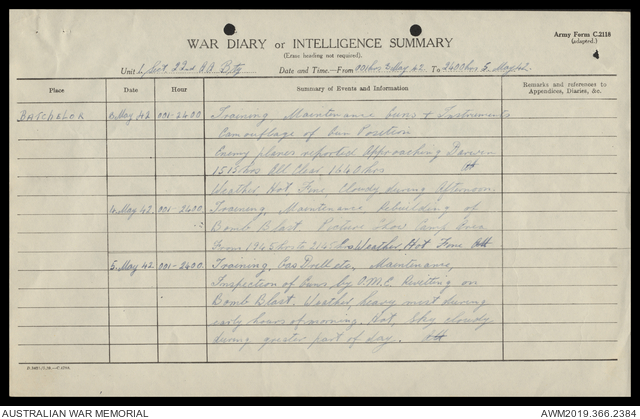 Army Form C.2118
(adapted.)
WAR DIARY or INTELLIGENCE SUMMARY
(Erase heading not required).
Unit Sect. 22nd A.A. Bty Date and Time.—From 001 hrs 3 May 42. To 2400 hrs 5. May 42.
Place Date Hour Summary of Events and Information Remarks and references to Appendices, Diaries, &c.
BATCHELOR 3. May 42 001-2400 Training Maintenance Guns & Instruments
Camouflage of Gun Position
Enemy planes reported approaching Darwin
1515 hrs All Clear 1640 hrs
Weather Hot Fine, Cloudy during Afternoon
4. May 42. 001-2400 Training, Maintenance Rebuilding of
Bomb Blast. Picture Show Camp Area
From 1945 hrs to 2145 hrs Weather, Hot Fine
5. May 42. 001-2400 Training, Gas Drill etc. Maintenance,
Inspection of Guns, by O.M.E. on
Bomb Blast, Weather, heavy mist during
early hours of morning. Hot, Sky cloudy
during greater part of day.
AUSTRALIAN WAR MEMORIAL
AWM2019.366.2384